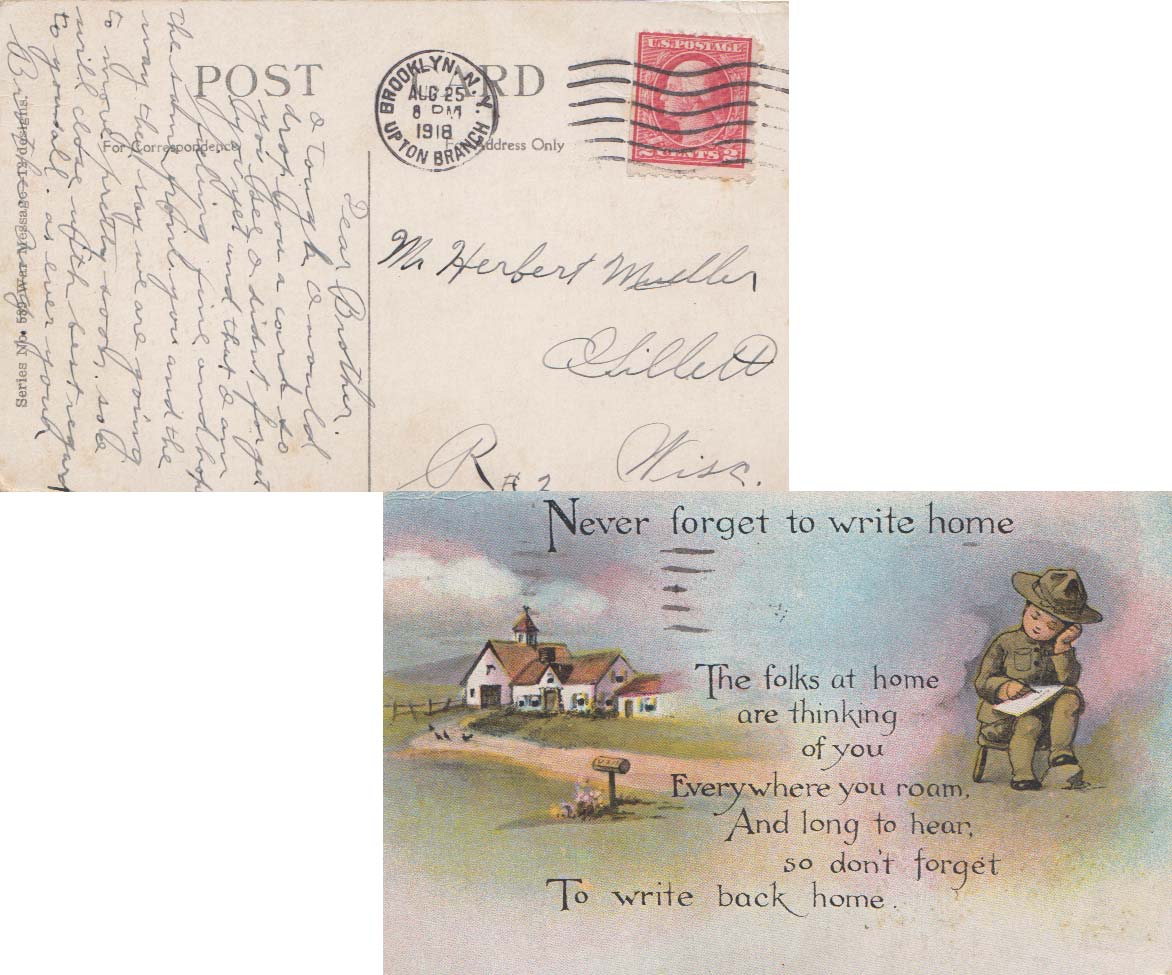 POST CARD
For Correspondence
For Address Only
BROOKLYN, N.Y.
AUG 25
8 PM
1918
UPTON BRANCH
U.S. POSTAGE
2 CENTS 2
Dear Brother.
I tought I would
drop you a card so
you see I didnt forget
you yet and that I am
feeling fine and hop
the same from you and the
way they say we are going
to move pretty soon. so I
will close with best regard
to you all. as ever your
Brother
Series No. 589 War Message 12 designs.
Mr Herbert Mueller
Gillett
R # 2 Wisc.
Never forget to write home
The folks at home
are thinking
of you
Everywhere you roam,
And long to hear,
so don't forget
To write back home.
MAIL